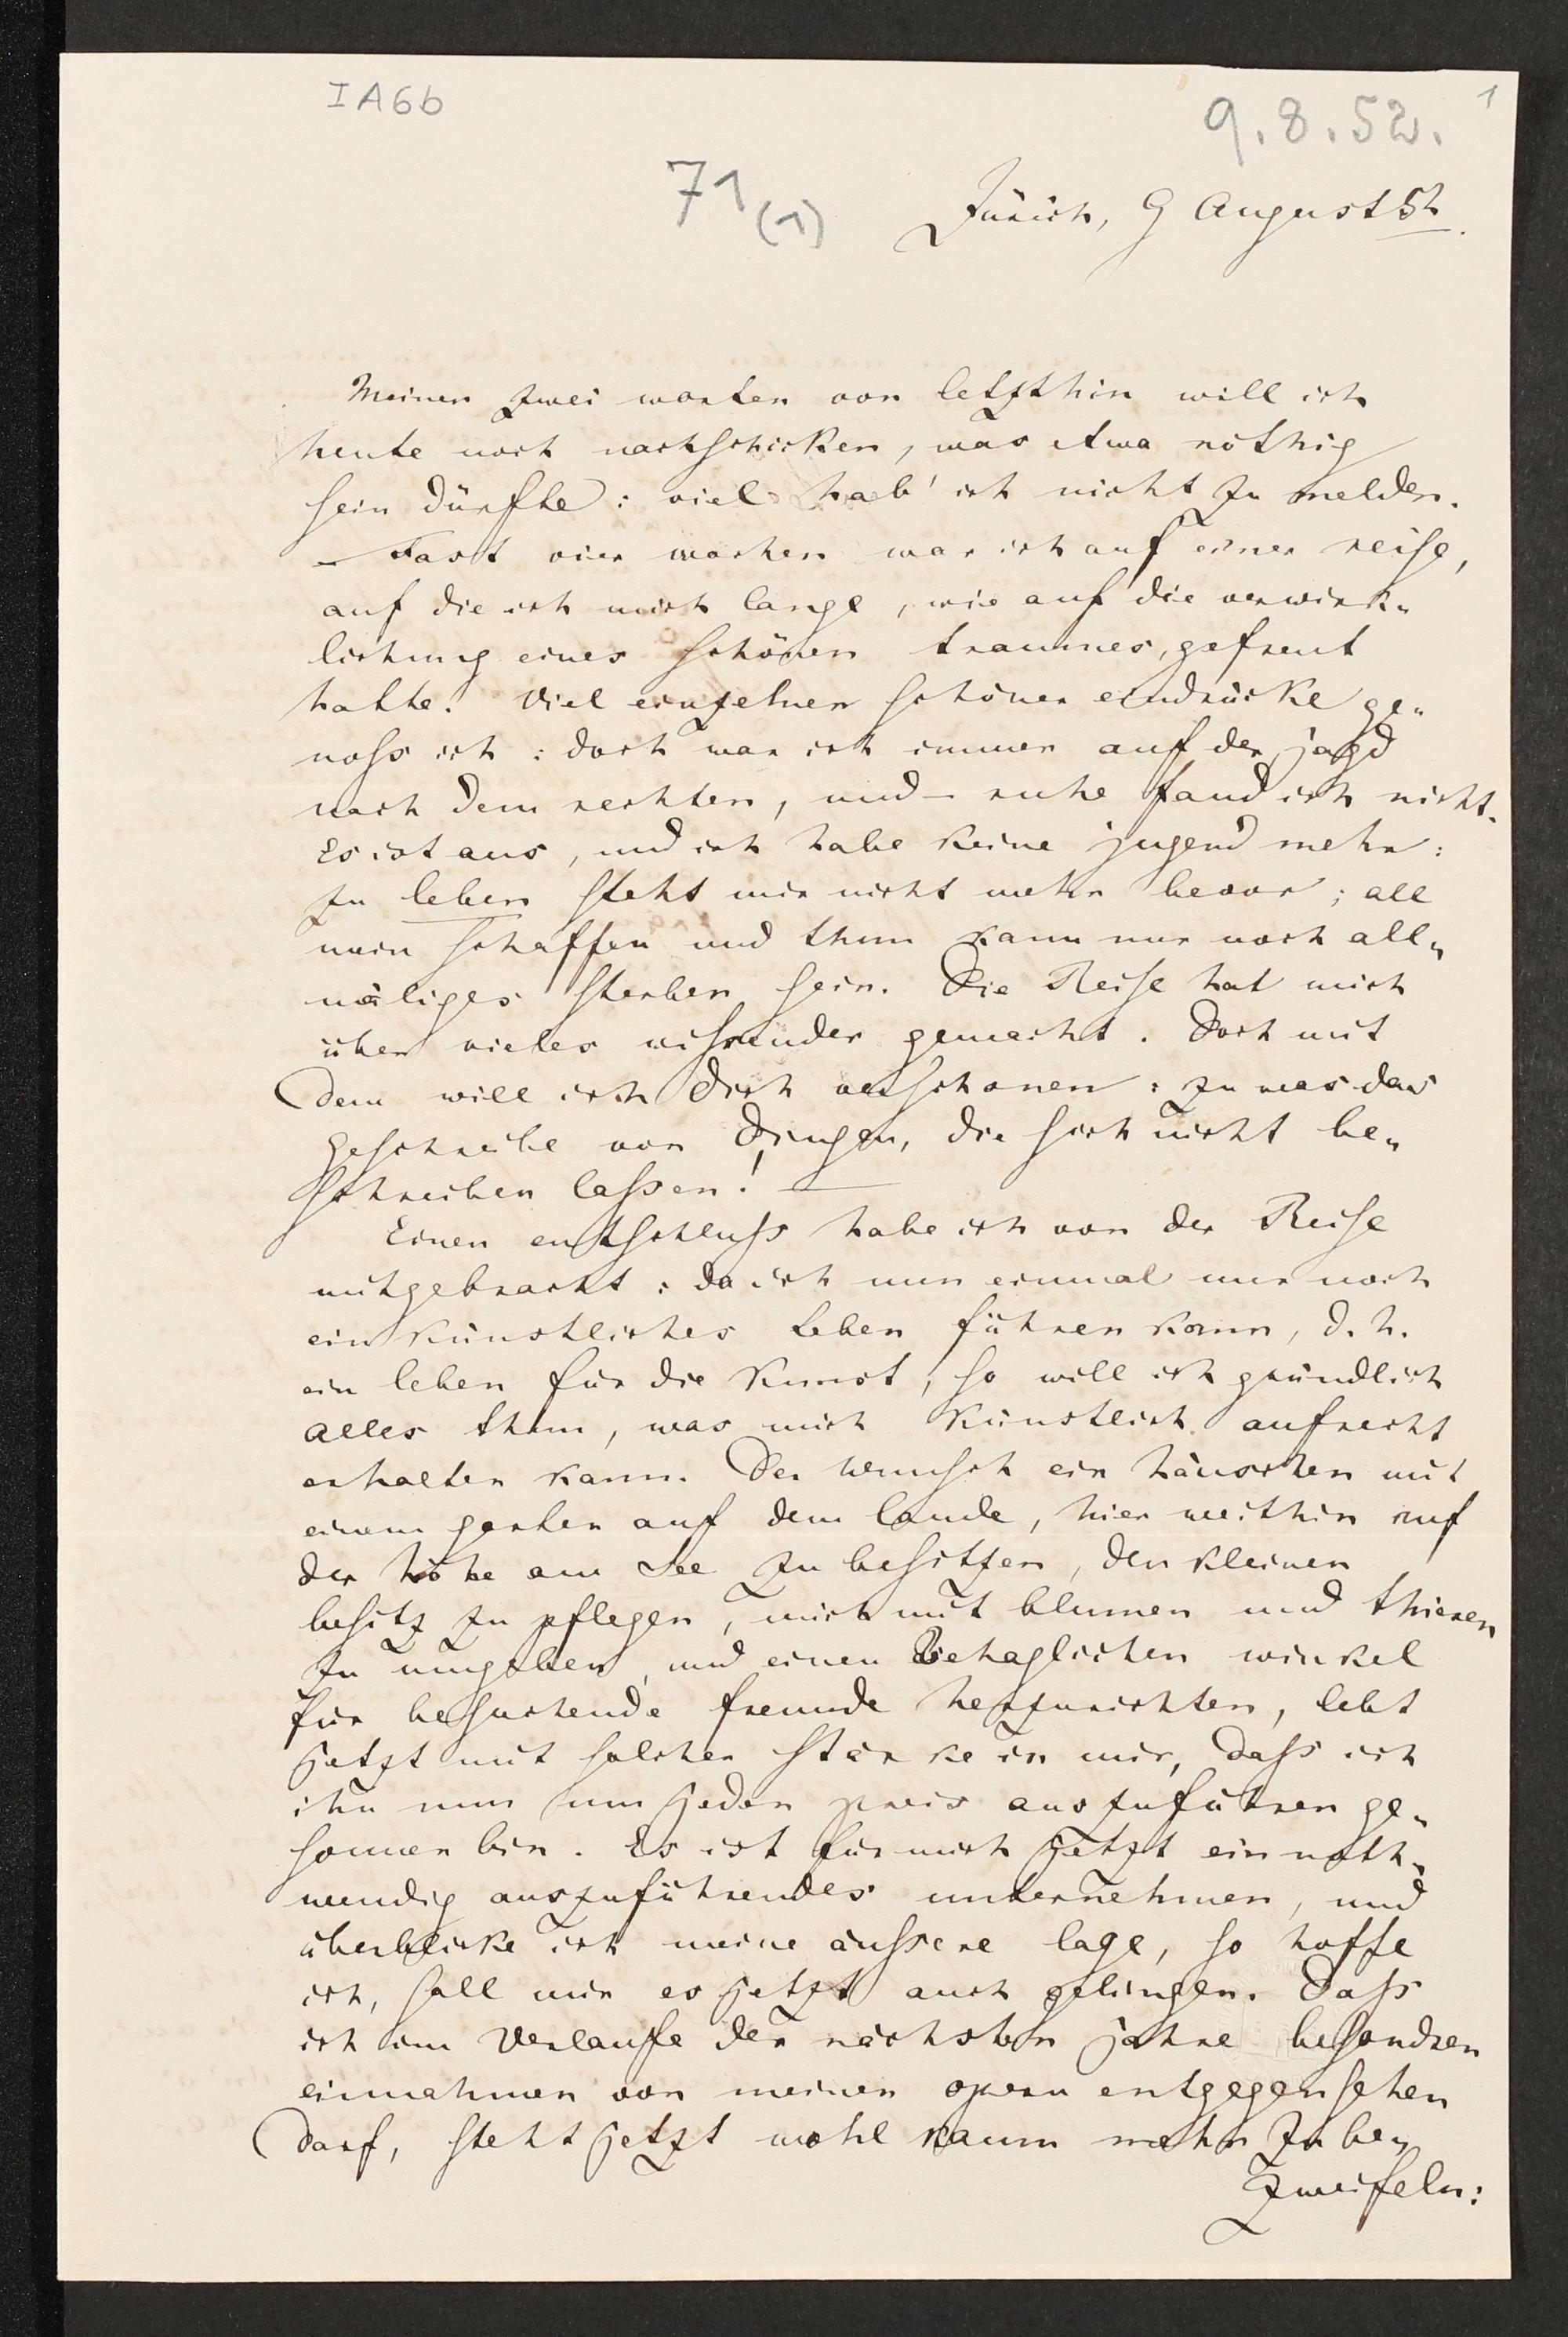 IA6b
9.8.52.
1
71(1)
Zürich, 9 August 52.
Meinen zwei worten von letzthin will ich
heute noch nachschicken, was etwa nöthig
sein dürfte: viel hab' ich nicht zu melden.
– Fast vier wochen war ich auf einer reise,
auf die ich mich lange, wie auf die verwirk-
lichung eines schönen traumes, gefreut
hatte. Viel einzelner schöner eindrücke ge-
noss ich: doch war ich immer auf der jagd
nach dem rechten, und – ruhe fand ich nicht.
Es ist aus, und ich habe keine jugend mehr:
zu leben steht mir nicht mehr bevor; all
mein schaffen und thun kann nur noch all-
mäliges sterben sein. Die Reise hat mich
über vieles wissender gemacht. Doch mit
dem will ich Dich verschonen: zu was das
geschreibe von Dingen, die sich nicht be-
schreiben lassen! —
Einen entschluss habe ich von der Reise
mitgebracht: da ich nun einmal nur noch
ein künstliches Leben führen kann, d. h.
ein leben für die Kunst, so will ich gründlich
alles thun, was mich künstlich aufrecht
erhalten kann. Der wunsch ein häuschen mit
einem garten auf dem lande, hier weithin auf
der höhe am See zu besitzen, den kleinen
besitz zu pflegen, mich mit blumen und thieren
zu umgeben, und einen behaglichen winkel
für besuchende freunde herzurichten, lebt
jetzt mit solcher stärke in mir, dass ich
ihn nun um jeden preis auszuführen ge-
sonnen bin. Es ist für mich jetzt ein noth-
wendig auszuführendes unternehmen, und
überblicke ich meine äussere lage, so hoffe
ich, soll mir es jetzt auch gelingen. Dass
ich im Verlaufe der nächsten jahre besondren
einnahmen von meinen opern entgegensehen
darf, steht jetzt wohl kaum mehr zu be-
zweifeln: